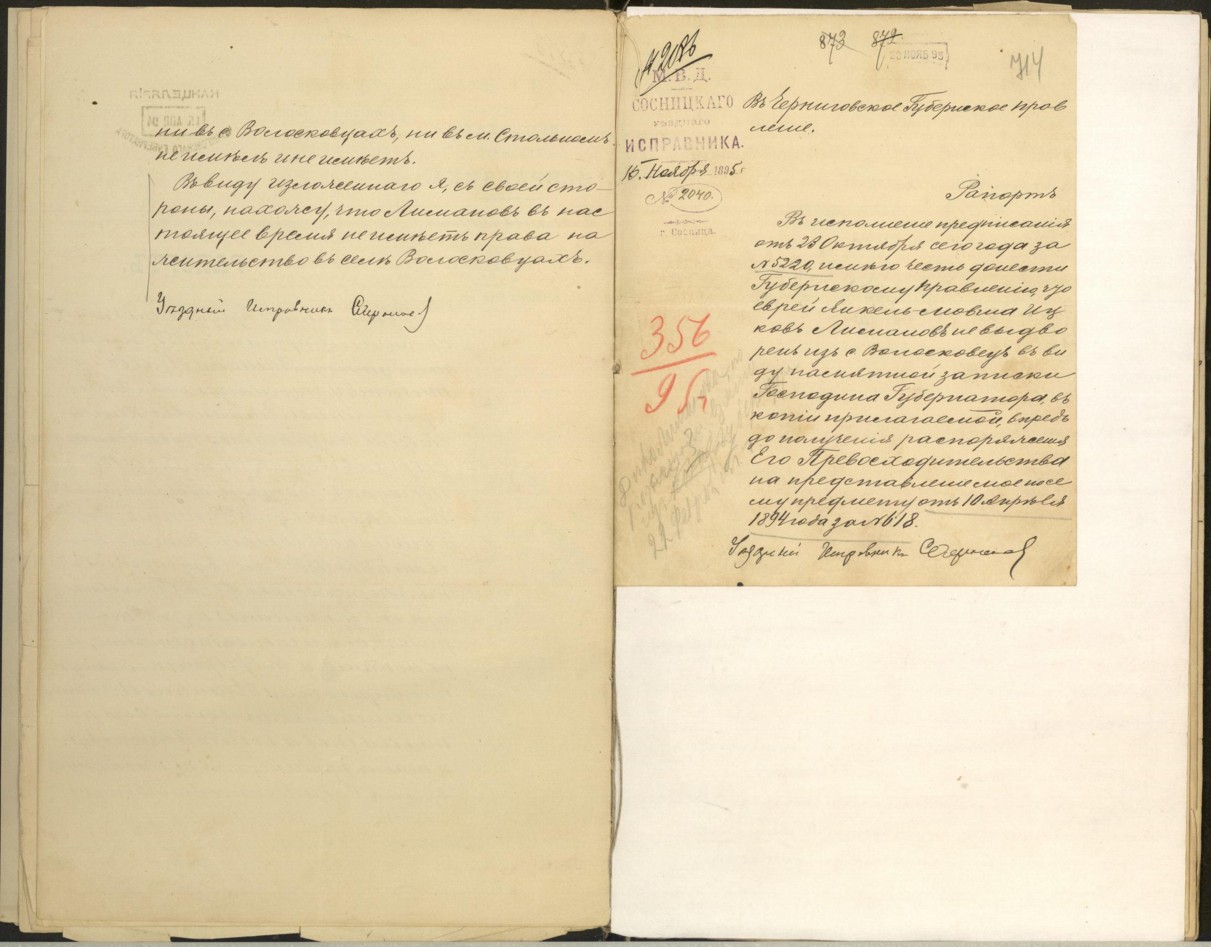 ни въ с Волосковцахъ, ни въ м. Стольномъ
не имѣлъ и не имѣетъ.
Въ виду изложеннаго я, съ своей сто-
роны, нахожу, что Лисмановъ въ нас
тоящее время не имѣетъ права на
жительство въ селѣ Волосковцахъ.
Уѣздный Исправникъ
КАНЦЕЛЯРІЯ
15 АПР 94
873 872
НОЯБ 95
714
М. В. Д.
СОСНИЦКАГО
УѢЗДНАГО
ИСПРАВНИКА.
16 Ноября 1895 г
№ 2040.
г. Сосница.
Въ Черниговское Губернское Прав
леніе.
Рапортъ
Въ исполненіе предписанія
отъ 28 Октября сего года за
№ 5220, имѣю честь донести
Губернскому Правленію, что
еврей Янкель-Мовша Иц
ковъ Лисмановъ не выдво
ренъ изъ с. Волосковецъ въ ви
ду памятной записки
Господина Губернатора, въ
копіи прилагаемой, впредь
до полученія распоряженія
Его Превосходительства
на представленіе мое по се
му предмету отъ 10 Апрѣля
1894 года за № 618.
Уѣздный Исправникъ
356
95 г